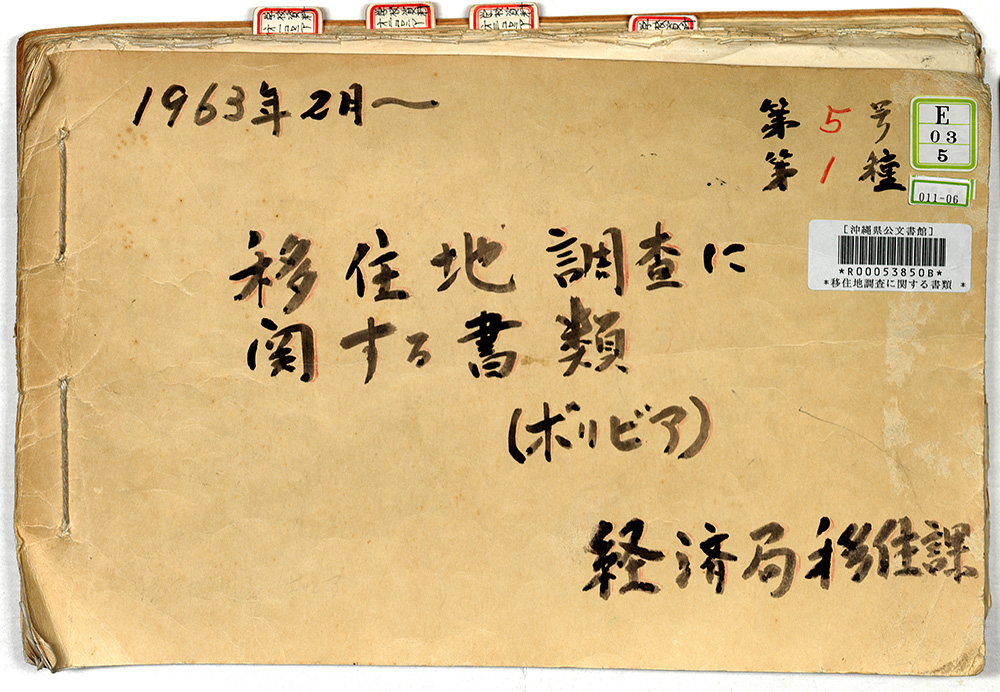 1963年2月〜
第5号
第1種
E
03
5
011-06
[沖縄県公文書館]
*R00053850B*
*移住地調査に関する書類 *
移住地調査に
関する書類
(ボリビア)
経済局移住課